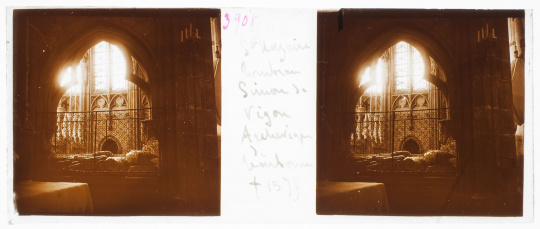 3908
St Nazaire
Tombeau
Simon de
Vigor
Archevêque
Narbonne
† 157